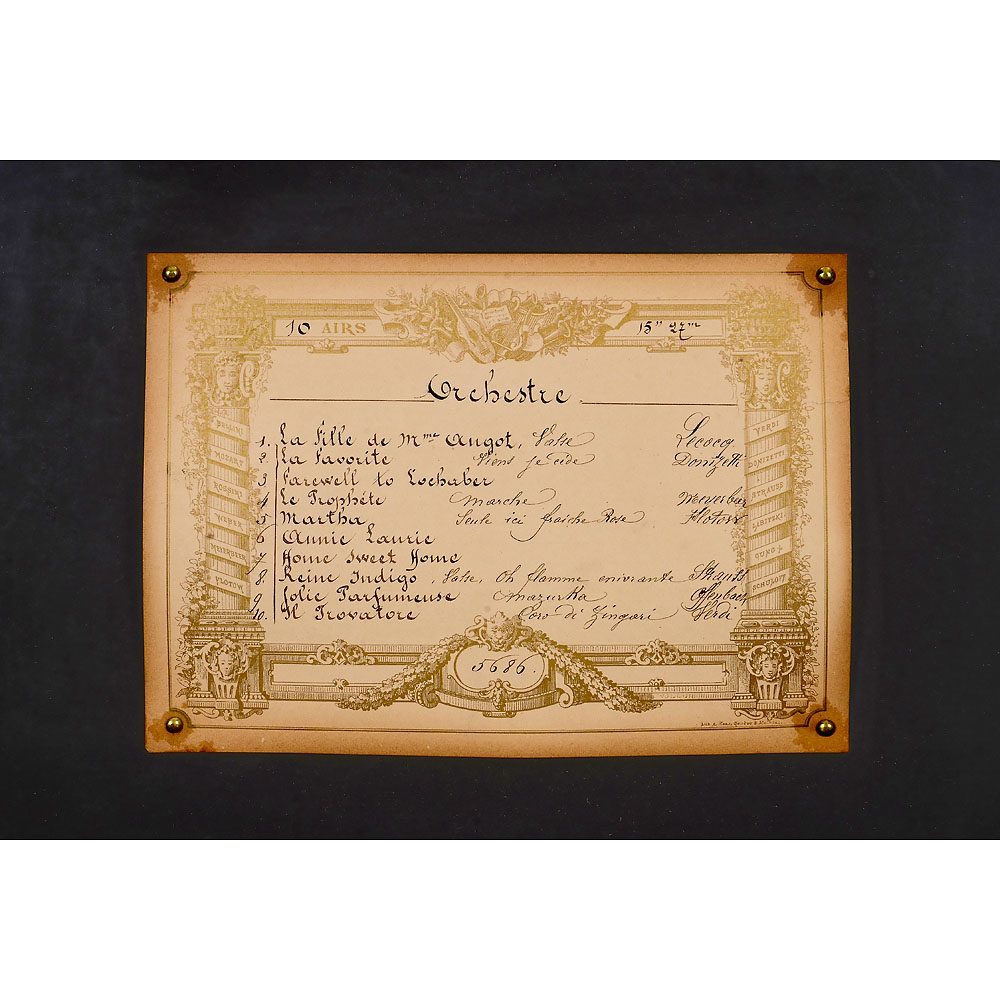 10 AIRS 15" 27 m
Orchestre
1. La Fille de Mme Angot, Valse Lecocq
2. La Favorite Viens je cède Donizetti
3 Farewell to Lochaber
4 Le Prophète Marche Meyerbeer
5 Martha Seule ici fraiche Rose Flotow
6 Annie Laurie
7 Home Sweet Home
8. Reine Indigo, Valse, Oh flamme enivrante Strauss
9 Jolie Parfumeuse Mazurka Offenbach
10. Il Trovatore Coro di Zingari Verdi
5686.
BELLINI
MOZART
ROSSINI
WEBER
MEYERBEER
FLOTOW
VERDI
DONIZETTI
STRAUSS
LABITZKI
GUNGL
SCHULOFF